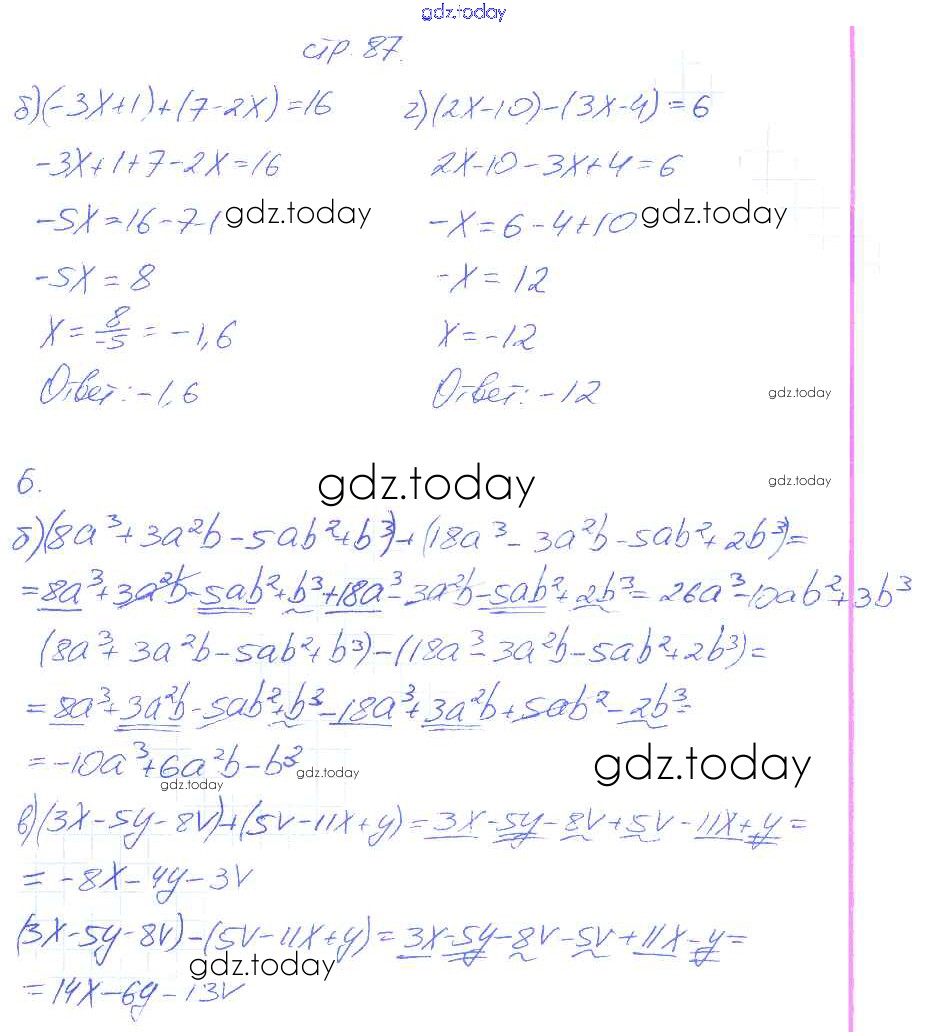 gdz.today
стр. 87.
б) (-3x+1)+(7-2x)=16
-3x+1+7-2x=16
-5x=16-7-1 gdz.today
-5x=8
x=8/-5=-1,6
Ответ: -1,6
г) (2x-10)-(3x-4)=6
2x-10-3x+4=6
-x=6-4+10 gdz.today
-x=12
x=-12
Ответ: -12
gdz.today
6.
gdz.today
gdz.today
б) (8a³+3a²b-5ab²+b³)+(18a³-3a²b-5ab²+2b³)=
=8a³+3a²b-5ab²+b³+18a³-3a²b-5ab²+2b³=26a³-10ab²+3b³
(8a³+3a²b-5ab²+b³)-(18a³-3a²b-5ab²+2b³)=
=8a³+3a²b-5ab²+b³-18a³+3a²b+5ab²-2b³=
=-10a³+6a²b-b³
gdz.today
gdz.today
gdz.today
в) (3x-5y-8v)+(5v-11x+y)=3x-5y-8v+5v-11x+y=
=-8x-4y-3v
(3x-5y-8v)-(5v-11x+y)=3x-5y-8v-5v+11x-y=
gdz.today
=14x-6y-13v